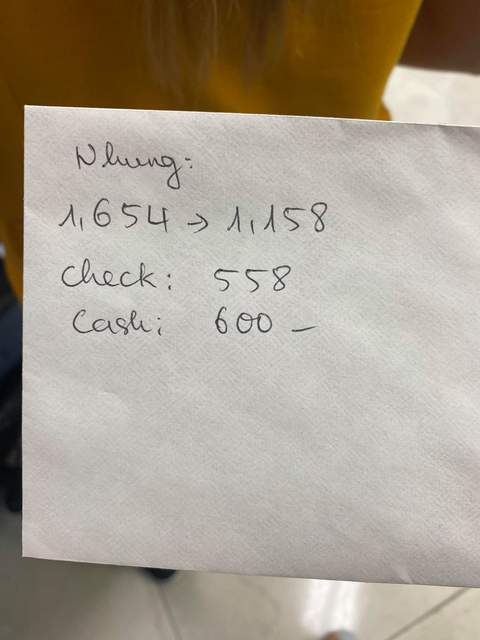 Nhung:
1,654 → 1,158
Check: 558
Cash: 600 –